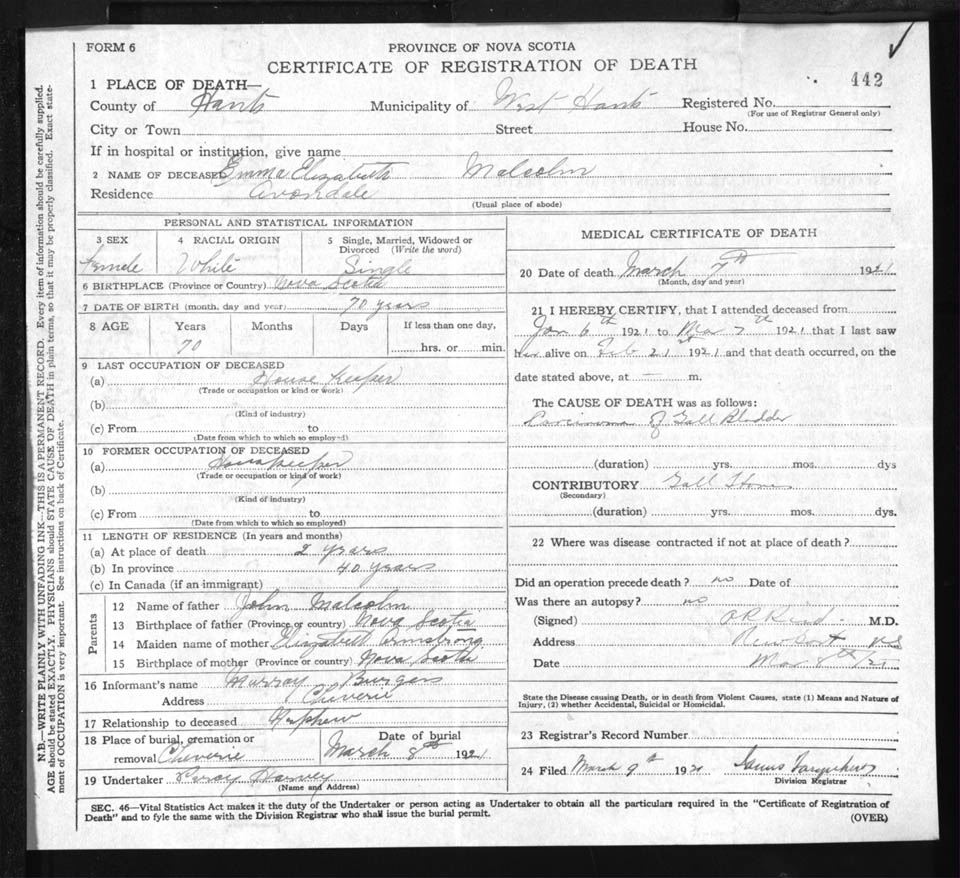 FORM 6
PROVINCE OF NOVA SCOTIA
CERTIFICATE OF REGISTRATION OF DEATH
442
1 PLACE OF DEATH—
County of Hants Municipality of West Hants Registered No.
(For use of Registrar General only)
City or Town Street House No.
If in hospital or institution, give name
2 NAME OF DECEASED Emma Elizabeth Malcolm
Residence Avondale
(Usual place of abode)
PERSONAL AND STATISTICAL INFORMATION
3 SEX 4 RACIAL ORIGIN 5 Single, Married, Widowed or Divorced (Write the word)
Female White Single
6 BIRTHPLACE (Province or Country) Nova Scotia
7 DATE OF BIRTH (month, day and year) 70 years
8 AGE Years Months Days If less than one day,
70 hrs. or min.
9 LAST OCCUPATION OF DECEASED
(a) House Keeper
(Trade or occupation or kind or work)
(b)
(Kind of industry)
(c) From to
(Date from which to which so employed)
10 FORMER OCCUPATION OF DECEASED
(a) Housekeeper
(Trade or occupation or kind of work)
(b)
(Kind of industry)
(c) From to
(Date from which to which so employed)
11 LENGTH OF RESIDENCE (In years and months)
(a) At place of death 2 years
(b) In province 40 years
(c) In Canada (if an immigrant)
Parents
12 Name of father John Malcolm
13 Birthplace of father (Province or country) Nova Scotia
14 Maiden name of mother Elizabeth Armstrong
15 Birthplace of mother (Province or country) Nova Scotia
16 Informant's name Murray Burgess
Address Cheverie
17 Relationship to deceased Nephew
18 Place of burial, cremation or removal Cheverie
Date of burial
March 8th 1921
19 Undertaker Percy Harvey
(Name and Address)
MEDICAL CERTIFICATE OF DEATH
20 Date of death March 7th 1921
(Month, day and year)
21 I HEREBY CERTIFY, that I attended deceased from
Jan 6th 1921 to Mar 7th 1921 that I last saw
her alive on Feb 21st 1921 and that death occurred, on the
date stated above, at — m.
The CAUSE OF DEATH was as follows:
Carcinoma of Gall Bladder
(duration) yrs. mos. dys
CONTRIBUTORY Gall Stones
(Secondary)
(duration) yrs. mos. dys.
22 Where was disease contracted if not at place of death?
Did an operation precede death? no Date of
Was there an autopsy? no
(Signed) M.D.
Address Newport NS
Date Mar 8th/21
State the Disease causing Death, or in death from Violent Causes, state (1) Means and Nature of
Injury, (2) whether Accidental, Suicidal or Homicidal.
23 Registrar's Record Number
24 Filed March 9th 1921 Farquhar
Division Registrar
SEC. 46—Vital Statistics Act makes it the duty of the Undertaker or person acting as Undertaker to obtain all the particulars required in the "Certificate of Registration of
Death" and to fyle the same with the Division Registrar who shall issue the burial permit.
(OVER)
N.B.—WRITE PLAINLY WITH UNFADING INK—THIS IS A PERMANENT RECORD. Every item of information should be carefully supplied.
AGE should be stated EXACTLY. PHYSICIANS should STATE CAUSE OF DEATH in plain terms, so that it may be properly classified. Exact state-
ment of OCCUPATION is very important. See instructions on back of Certificate.